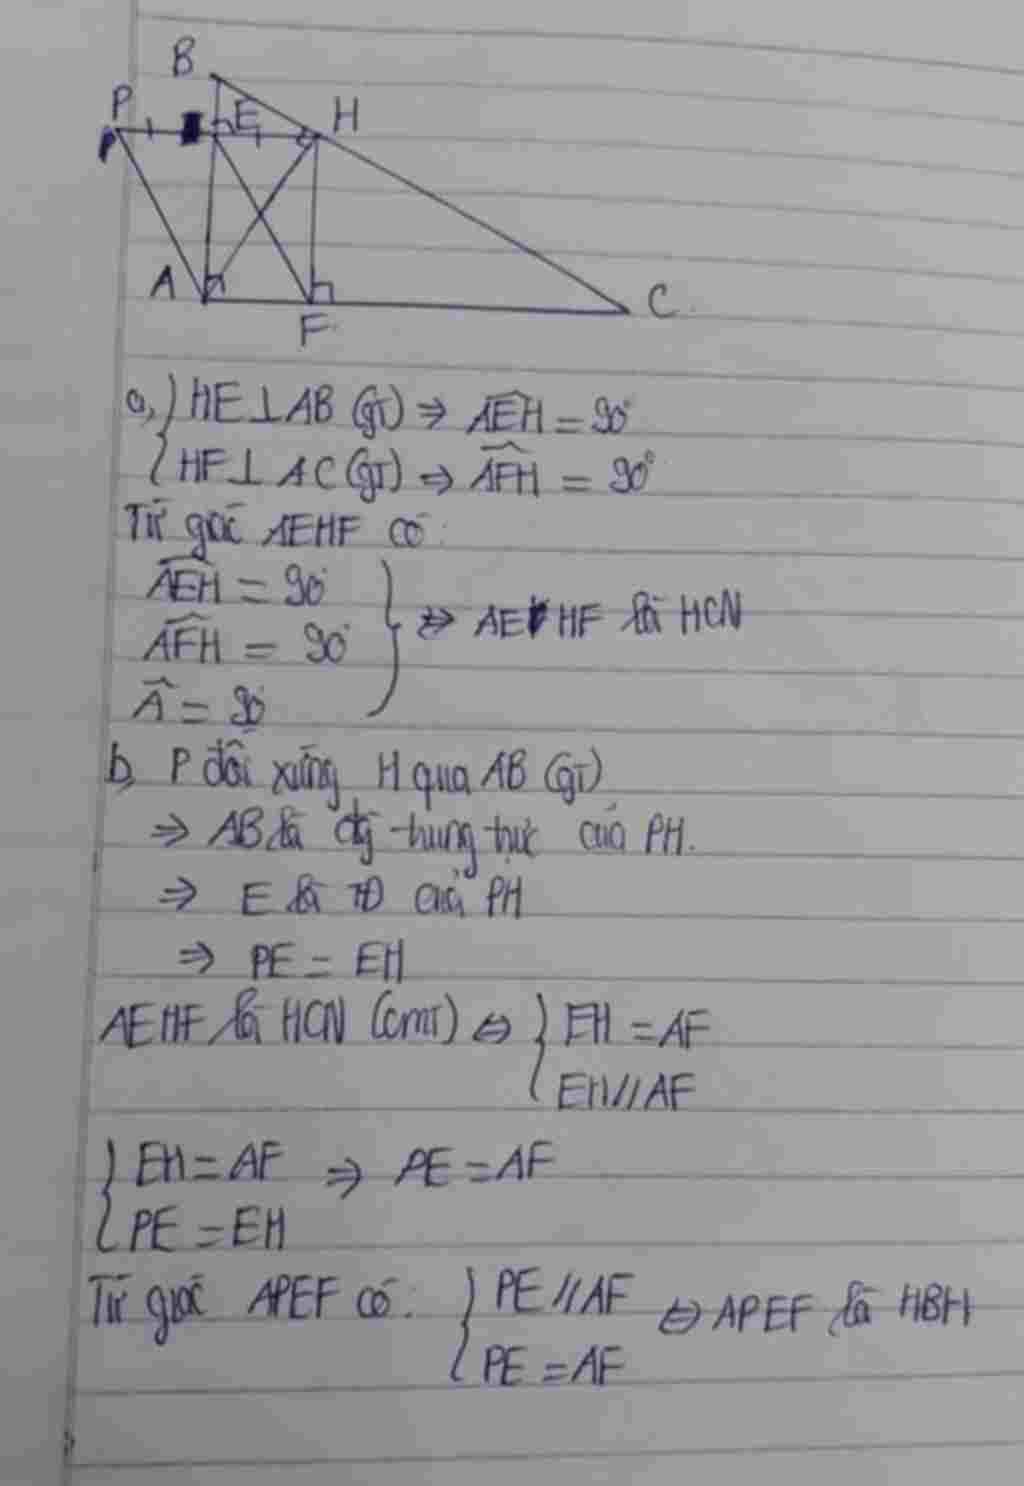 B
P E H
A F C
a, { HE ⊥ AB (gt) ⇒ \widehat{AEH} = 90°
{ HF ⊥ AC (gt) ⇒ \widehat{AFH} = 90°
Tứ giác AEHF có:
\widehat{AEH} = 90°
\widehat{AFH} = 90° } ⇒ AEHF là HCN
\widehat{A} = 90°
b, P đối xứng H qua AB (gt)
⇒ AB là đg trung trực của PH.
⇒ E là TĐ của PH
⇒ PE = EH
AEHF là HCN (cmt) ⇔ { EH = AF
{ EH // AF
{ EH = AF ⇒ PE = AF
{ PE = EH
Tứ giác APEF có: { PE // AF ⇔ APEF là HBH
{ PE = AF